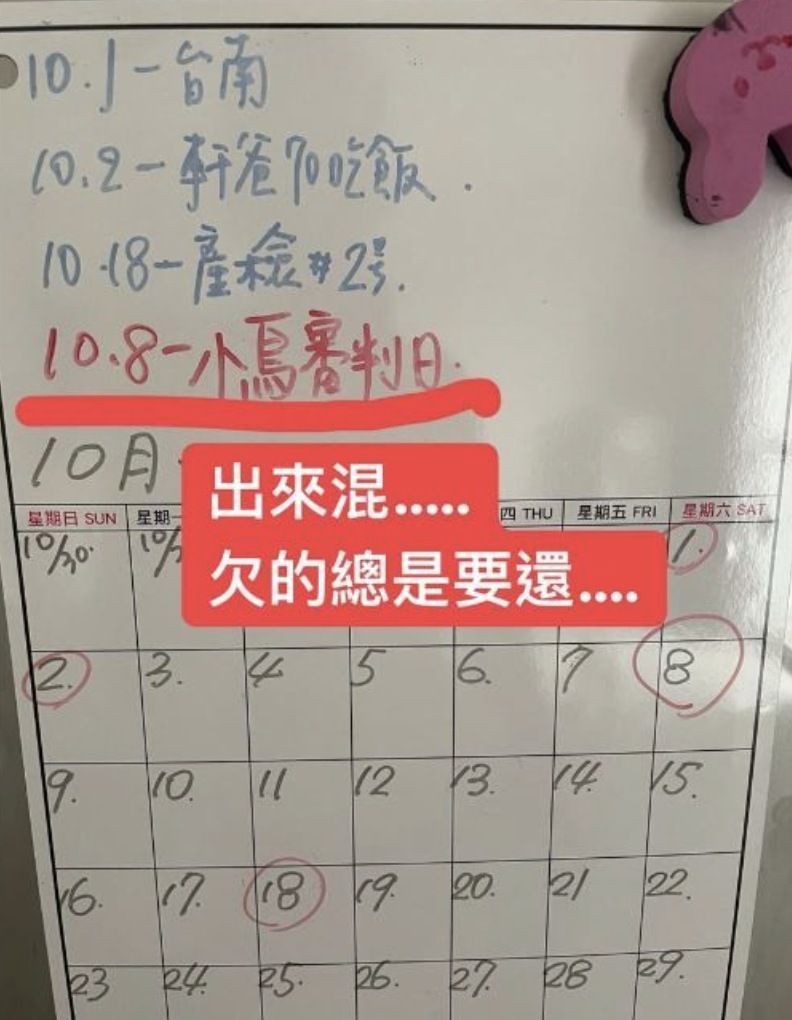 10.1-台南
10.2-軒爸70吃飯.
10.18-產檢#2号.
10.8-小鳥審判日.
10月.
出來混.....
欠的總是要還....
星期日 SUN 星期一 四 THU 星期五 FRI 星期六 SAT
10/30. 1.
2. 3. 4 5 6. 7 8
9. 10. 11 12 13. 14. 15.
16. 17. 18 19. 20. 21 22.
23 24. 25. 26. 27. 28 29.